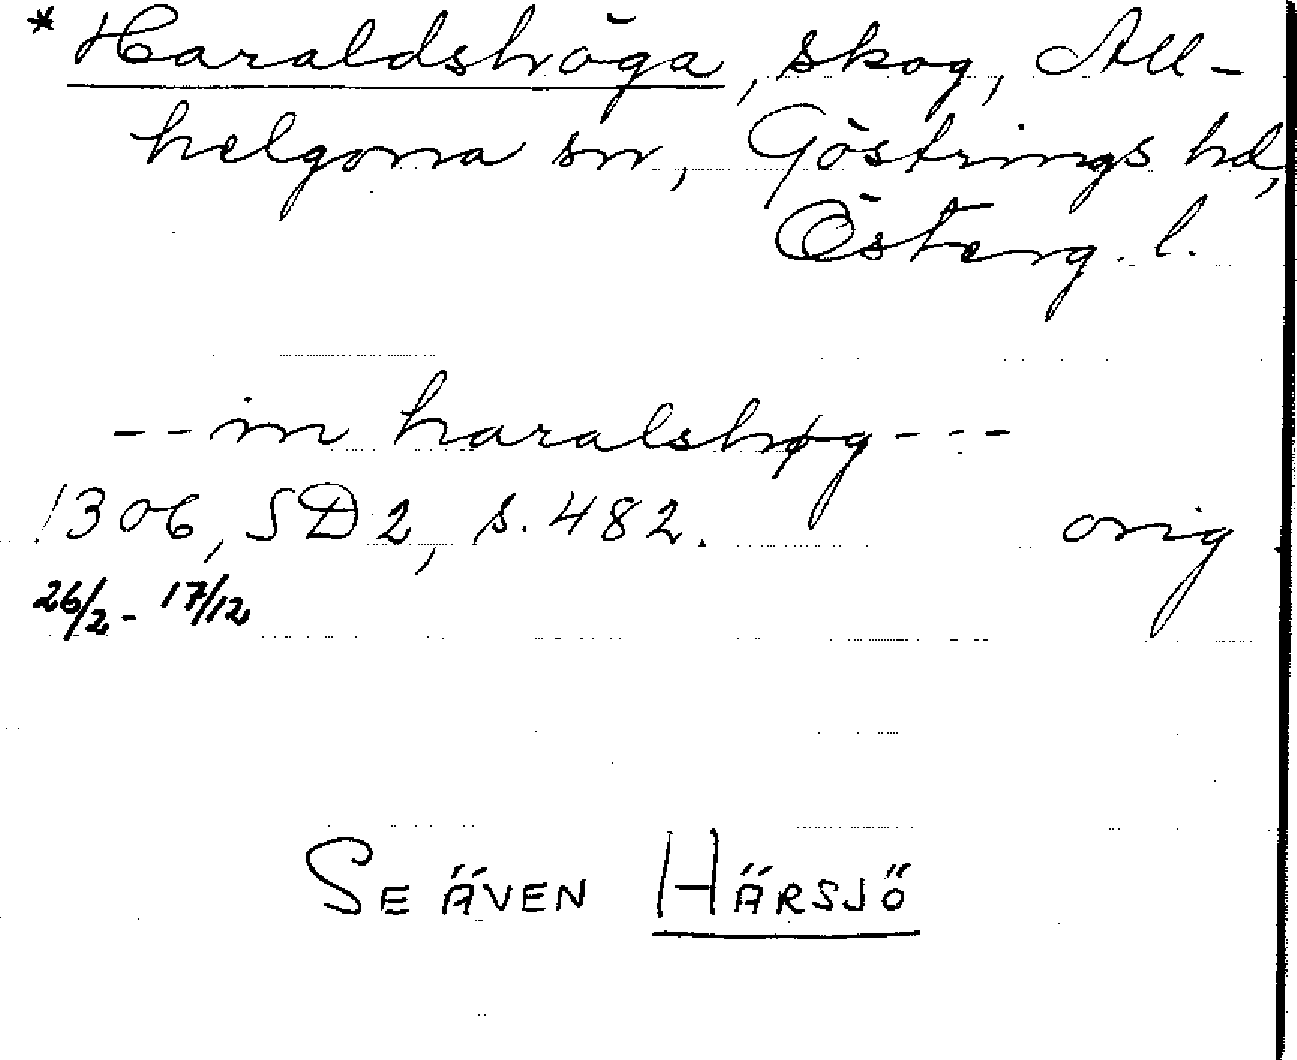 * Haraldshöga, skog, All-
helgona sn, Göstrings hd,
Österg. l.
--in haralshøg---
1306, SD 2, s. 482. orig
26/2 - 17/12
SE ÄVEN HÄRSJÖ